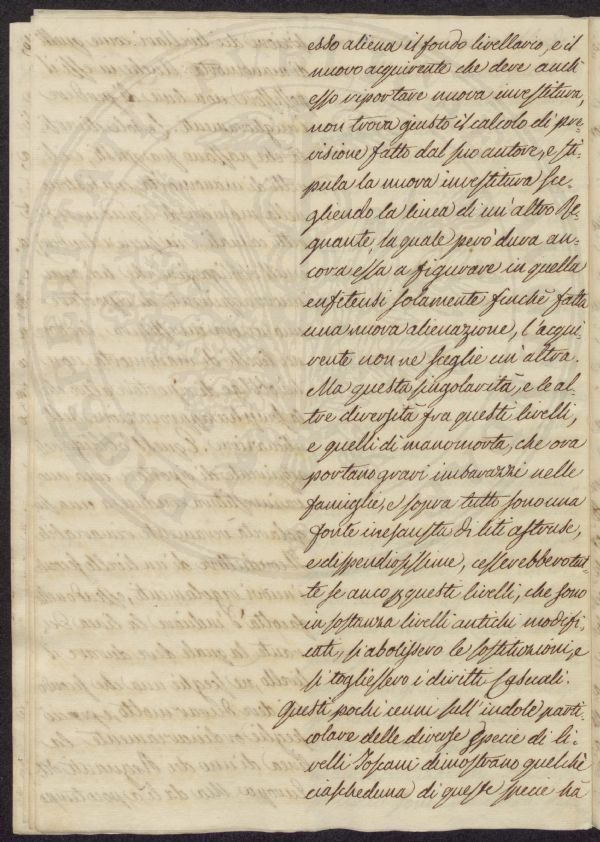 esso aliena il fondo livellario, e il
nuovo acquirente che deve anch'
esso riportare nuova investitura,
non trova giusto il calcolo di pre-
visione fatto dal suo autore, e sti-
pula la nuova investitura sce-
gliendo la linea di un'altro Re-
gnante, la quale però dura an-
cora essa a figurare in quella
enfiteusi solamente finchè fatta
una nuova alienazione, l'acqui-
rente non ne sceglie un'altra.
Ma questa singolarità, e le al-
tre diversità fra questi livelli,
e quelli di manomorta, che ora
portano gravi imbarazzi nelle
famiglie, e sopra tutto sono una
fonte inesausta di liti astruse,
e dispendiosissime, cesserebbero tut-
te se anco questi livelli, che sono
in sostanza livelli antichi modifi-
cati, si abolissero le sostituzioni, e
si togliessero i diritti Casuali.
Questi pochi cenni sull'indole parti-
colare delle diverse specie di li-
velli Toscani dimostrano quel che
ciascheduna di queste specie hà